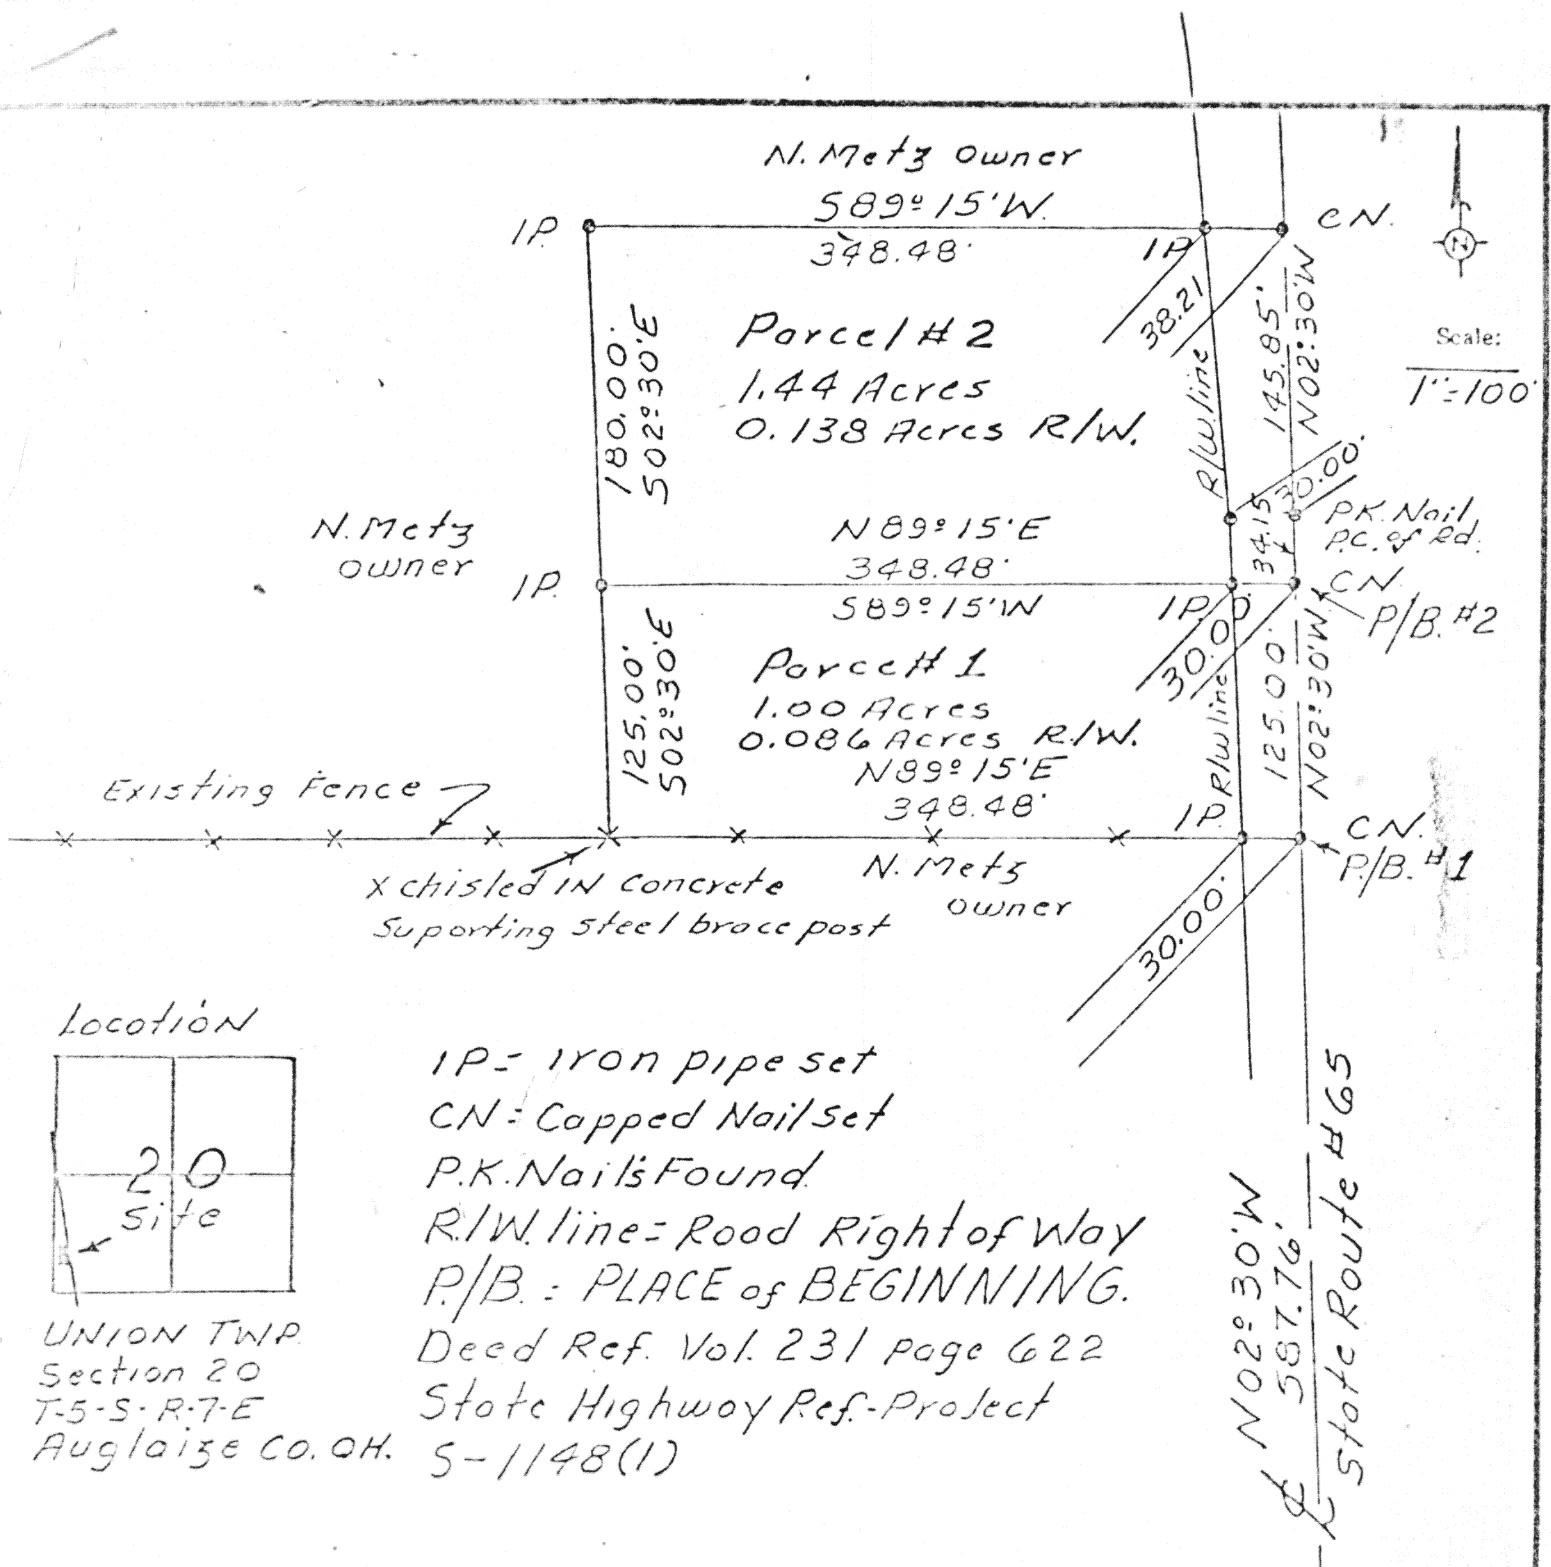 N. Metz owner
S 89° 15' W.
348.48'
I.P.
I.P.
C N.
38.21
R/W. line
145.85'
N 02° 30' W
Scale:
1" = 100'
180.00'
S 02° 30' E
Parcel # 2
1.44 Acres
0.138 Acres R/W.
30.00'
34.15
P.K. Nail
P.C. of Rd.
N. Metz
owner
I.P.
N 89° 15' E
348.48'
S 89° 15' W
I.P.
CN
P/B. #2
30.00'
125.00'
S 02° 30' E
Parcel # 1
1.00 Acres
0.086 Acres R/W.
N 89° 15' E
348.48'
R/W line
125.00'
N 02° 30' W
Existing Fence
I.P.
C N.
P/B. # 1
X chisled IN concrete
Suporting steel brace post
N. Metz
owner
30.00'
Location
2 0
Site
UNION TWP.
Section 20
T-5-S- R-7-E
Auglaize Co. OH.
I P = Iron pipe set
CN = Capped Nail set
P.K. Nail's Found
R/W. line = Road Right of Way
P/B. = PLACE of BEGINNING.
Deed Ref. Vol. 231 page 622
State Highway Ref.-Project
S-1148(1)
N 02° 30' W
587.76'
℄ State Route # 65